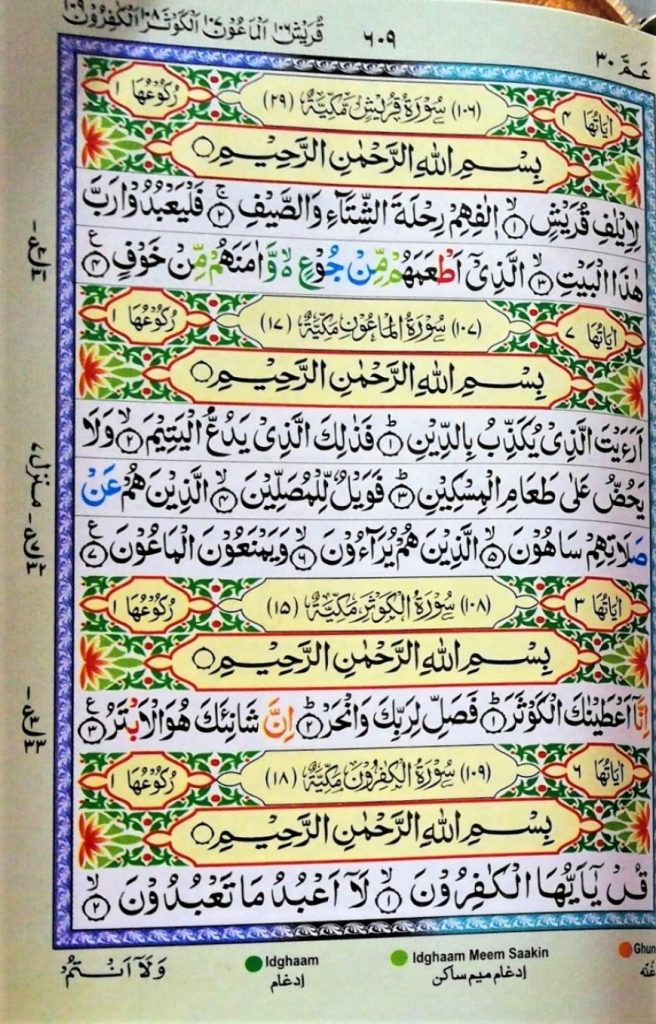 عَمَّ ٣٠
٦٠٩
قُرَيْش ١٠٦ اَلْمَاعُوْن ١٠٧ اَلْكَوْثَر ١٠٨ اَلْكٰفِرُوْن ١٠٩
اٰيَاتُهَا ٤ (١٠٦) سُوْرَةُ قُرَيْشٍ مَّكِّيَّةٌ (٢٩) رُكُوْعُهَا ١
بِسْمِ اللهِ الرَّحْمٰنِ الرَّحِيْمِ
لِاِيْلٰفِ قُرَيْشٍ ١ اٖلٰفِهِمْ رِحْلَةَ الشِّتَآءِ وَالصَّيْفِ ٢ فَلْيَعْبُدُوْا رَبَّ
هٰذَا الْبَيْتِ ٣ الَّذِىْٓ اَطْعَمَهُمْ مِّنْ جُوْعٍ ۙ وَّاٰمَنَهُمْ مِّنْ خَوْفٍ ٤
اٰيَاتُهَا ٧ (١٠٧) سُوْرَةُ الْمَاعُوْنِ مَكِّيَّةٌ (١٧) رُكُوْعُهَا ١
بِسْمِ اللهِ الرَّحْمٰنِ الرَّحِيْمِ
اَرَءَيْتَ الَّذِىْ يُكَذِّبُ بِالدِّيْنِ ١ فَذٰلِكَ الَّذِىْ يَدُعُّ الْيَتِيْمَ ٢ وَلَا
يَحُضُّ عَلٰى طَعَامِ الْمِسْكِيْنِ ٣ فَوَيْلٌ لِّلْمُصَلِّيْنَ ٤ الَّذِيْنَ هُمْ عَنْ
صَلَاتِهِمْ سَاهُوْنَ ٥ الَّذِيْنَ هُمْ يُرَآءُوْنَ ٦ وَيَمْنَعُوْنَ الْمَاعُوْنَ ٧
اٰيَاتُهَا ٣ (١٠٨) سُوْرَةُ الْكَوْثَرِ مَكِّيَّةٌ (١٥) رُكُوْعُهَا ١
بِسْمِ اللهِ الرَّحْمٰنِ الرَّحِيْمِ
اِنَّآ اَعْطَيْنٰكَ الْكَوْثَرَ ١ فَصَلِّ لِرَبِّكَ وَانْحَرْ ٢ اِنَّ شَانِئَكَ هُوَ الْاَبْتَرُ ٣
اٰيَاتُهَا ٦ (١٠٩) سُوْرَةُ الْكٰفِرُوْنَ مَكِّيَّةٌ (١٨) رُكُوْعُهَا ١
بِسْمِ اللهِ الرَّحْمٰنِ الرَّحِيْمِ
قُلْ يٰٓاَيُّهَا الْكٰفِرُوْنَ ١ لَآ اَعْبُدُ مَا تَعْبُدُوْنَ ٢
وَلَآ اَنْتُمْ
منزل ٧
Idghaam
ادغام
Idghaam Meem Saakin
ادغام میم ساکن
Ghun
غُنّه